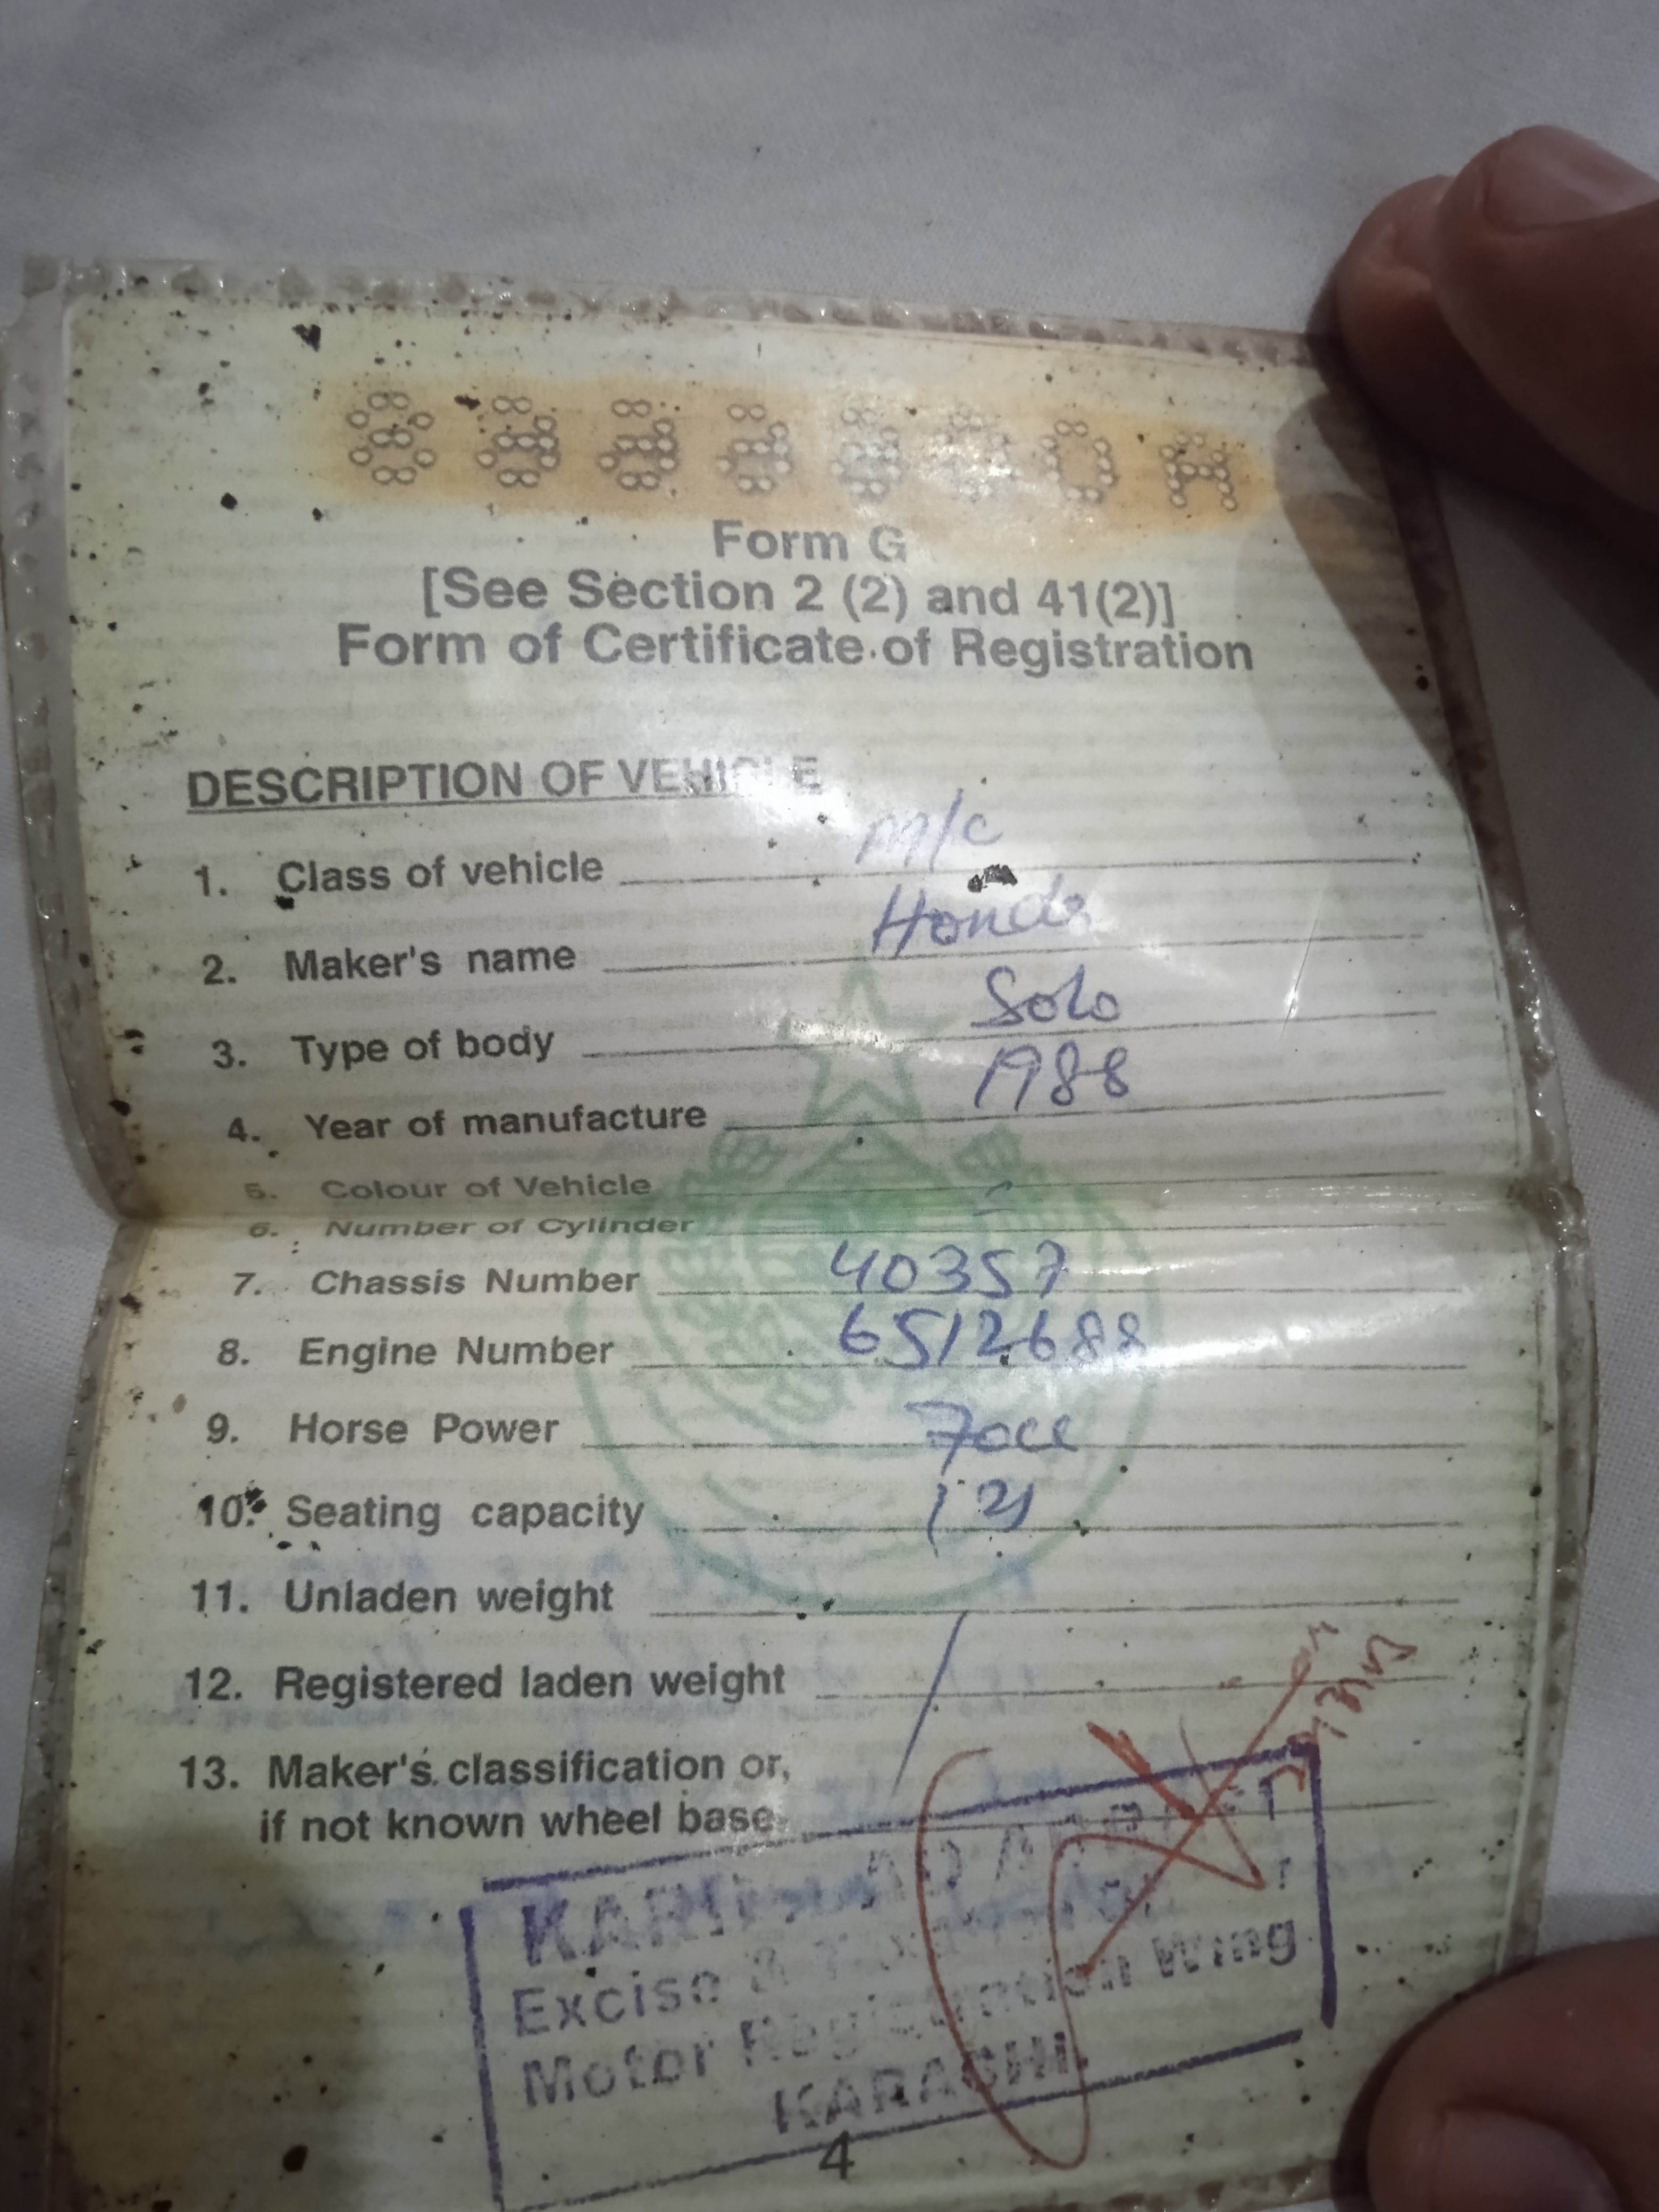 Form G
[See Section 2 (2) and 41(2)]
Form of Certificate of Registration
DESCRIPTION OF VEHICLE
1. Class of vehicle M/c
2. Maker's name Honda
3. Type of body Solo
4. Year of manufacture 1988
5. Colour of Vehicle
6. Number of Cylinder
7. Chassis Number 40357
8. Engine Number 6512688
9. Horse Power 70cc
10. Seating capacity
11. Unladen weight
12. Registered laden weight
13. Maker's classification or,
if not known wheel base
Excise &
Motor Registration Wing
KARACHI
4